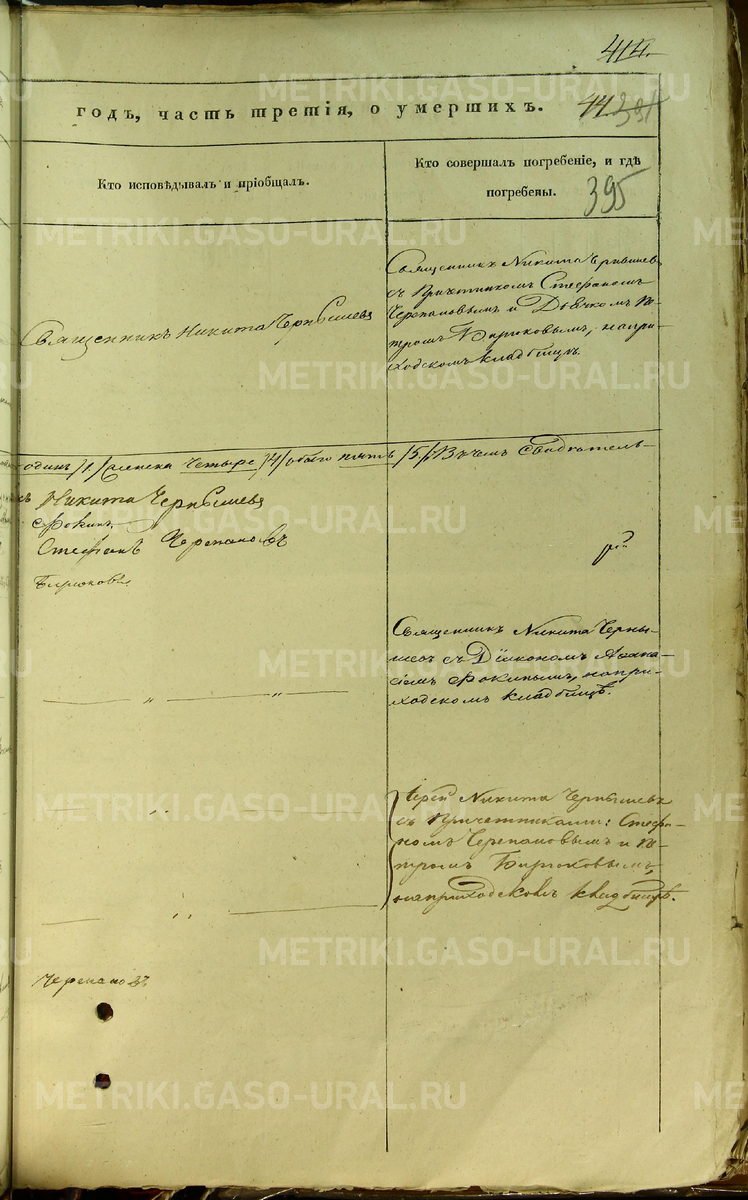 414.
годъ, часть третія, о умершихъ.
44. 391
Кто исповѣдывалъ и пріобщалъ.
Кто совершалъ погребеніе, и гдѣ
погребены.
395
Священникъ Никита Чернышевъ
Священникъ Никита Чернышевъ
съ Причетникомъ Стефаномъ
Черепановымъ и Дьячкомъ Пе-
тромъ Бирюковымъ, на при-
ходскомъ кладбищѣ.
одинъ /1/ женска четыре /4/ обоего пять /5/. Въ чемъ свидѣтель-
Никита Чернышевъ
Фокинъ
Стефанъ Черепановъ
Бирюковъ
Священникъ Никита Черны-
шевъ съ Діакономъ Афана-
сіемъ Фокинымъ, на при-
ходскомъ кладбищѣ.
Іерей Никита Чернышевъ
съ Причетниками: Стефа-
номъ Черепановымъ и Пе-
тромъ Бирюковымъ,
на приходскомъ кладбищѣ.
Черепановъ
METRIKI.GASO-URAL.RU